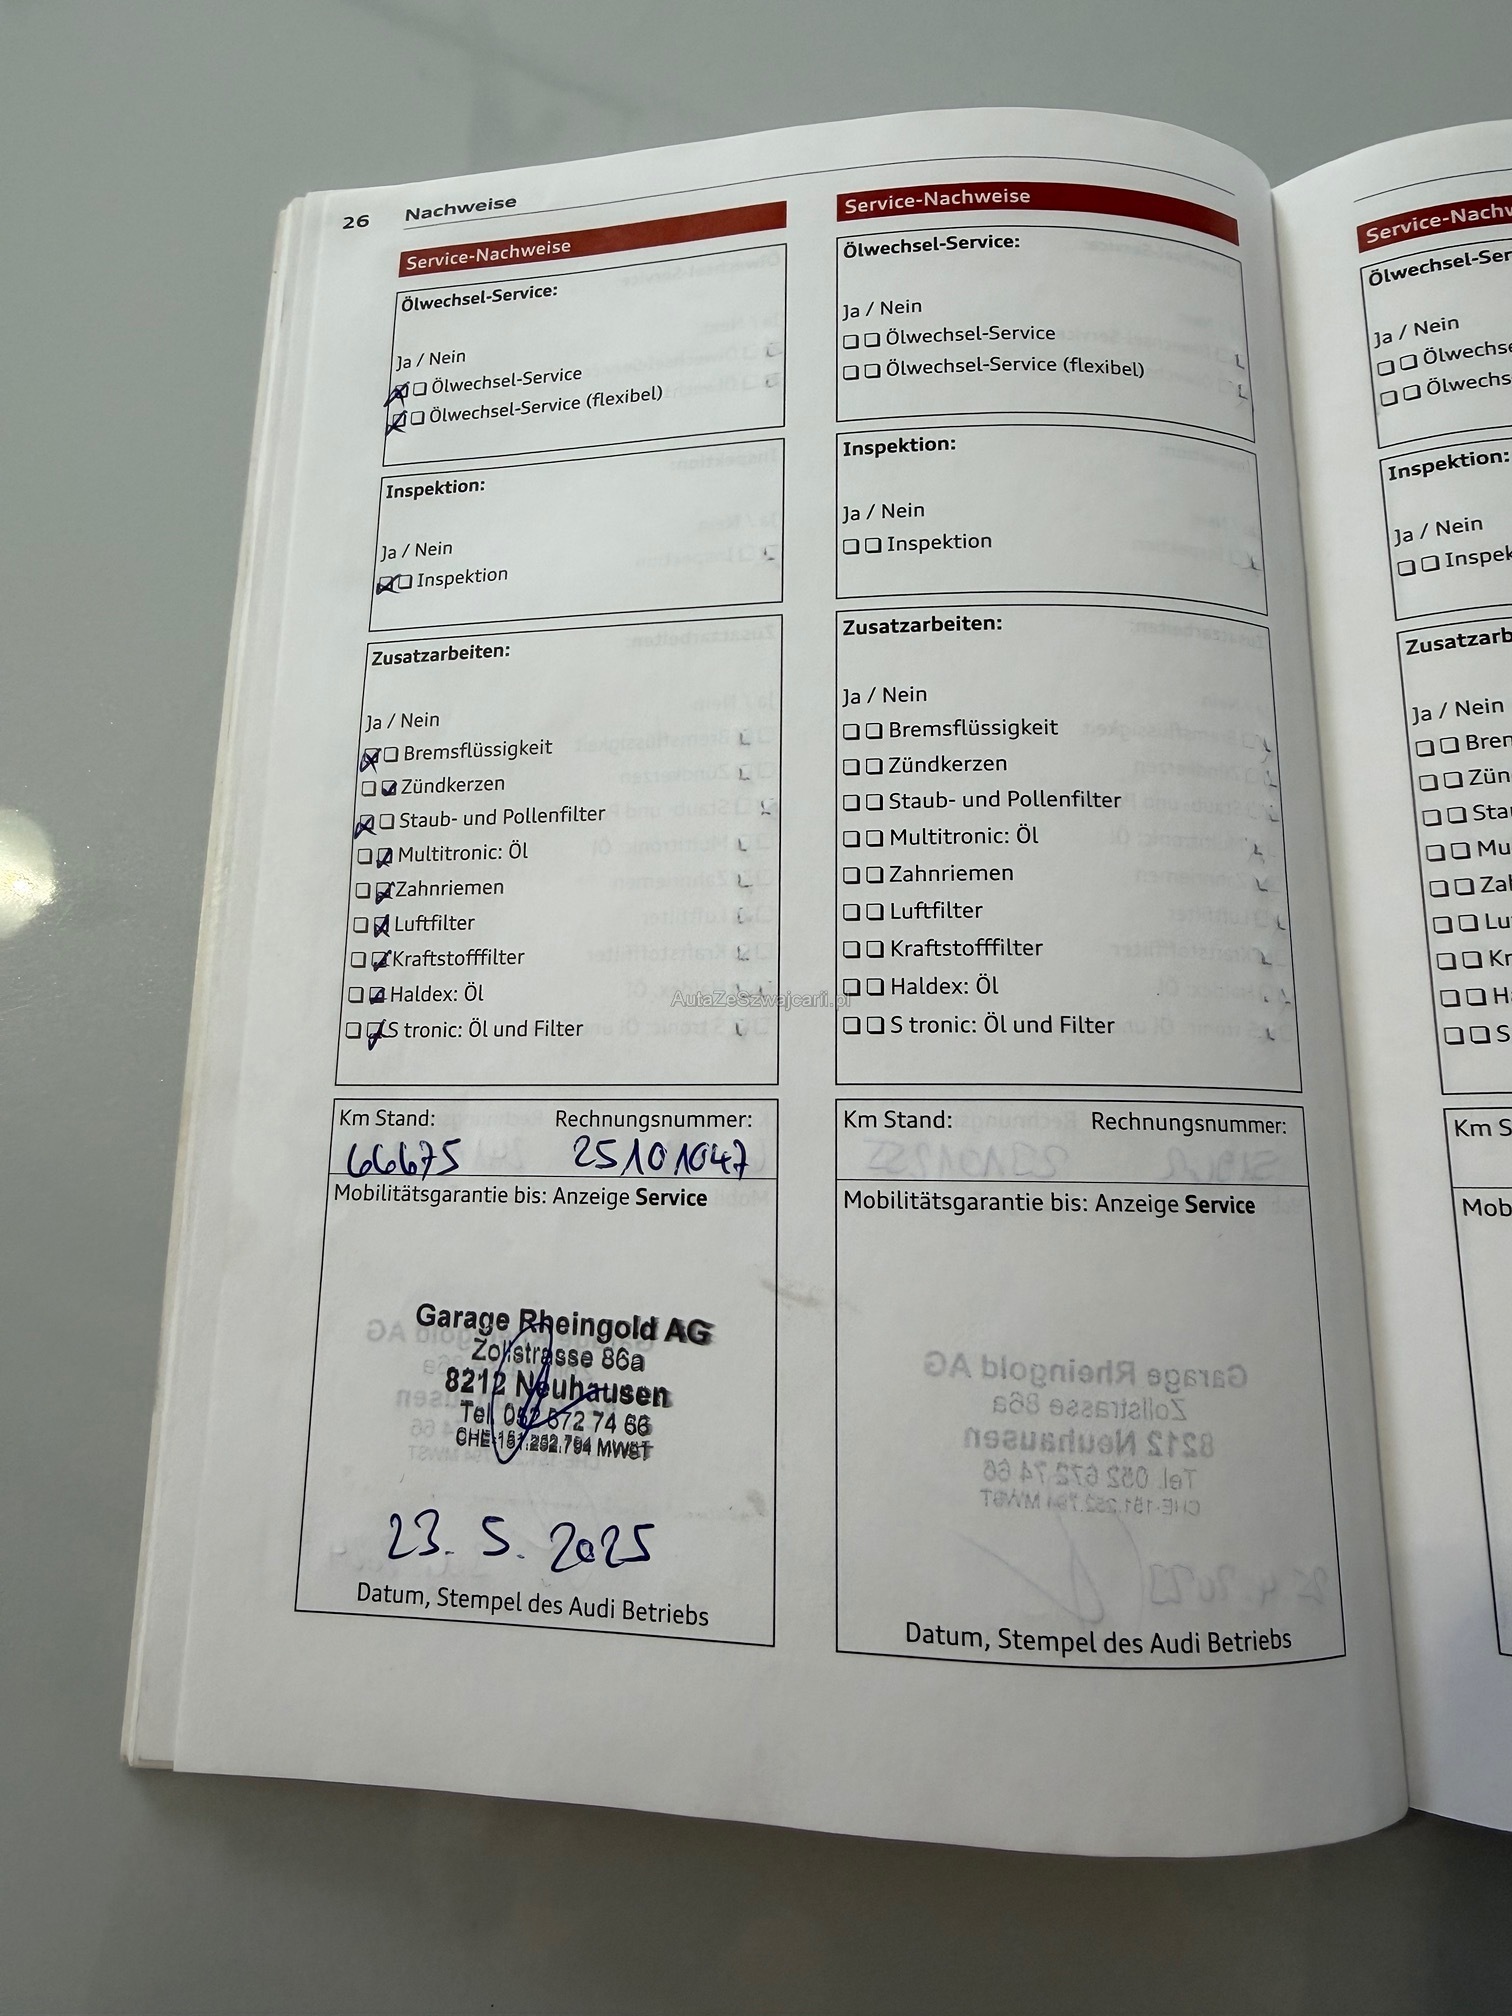 26 Nachweise
Service-Nachweise
Ölwechsel-Service:
Ja / Nein
Ölwechsel-Service
Ölwechsel-Service (flexibel)
Inspektion:
Ja / Nein
Inspektion
Zusatzarbeiten:
Ja / Nein
Bremsflüssigkeit
Zündkerzen
Staub- und Pollenfilter
Multitronic: Öl
Zahnriemen
Luftfilter
Kraftstofffilter
Haldex: Öl
S tronic: Öl und Filter
Km Stand: Rechnungsnummer:
66675 25101047
Mobilitätsgarantie bis: Anzeige Service
Garage Rheingold AG
Zollstrasse 86a
8212 Neuhausen
Tel. 052 672 74 66
CHE-151.252.794 MWST
23. 5. 2025
Datum, Stempel des Audi Betriebs
Service-Nachweise
Ölwechsel-Service:
Ja / Nein
Ölwechsel-Service
Ölwechsel-Service (flexibel)
Inspektion:
Ja / Nein
Inspektion
Zusatzarbeiten:
Ja / Nein
Bremsflüssigkeit
Zündkerzen
Staub- und Pollenfilter
Multitronic: Öl
Zahnriemen
Luftfilter
Kraftstofffilter
Haldex: Öl
S tronic: Öl und Filter
Km Stand: Rechnungsnummer:
Mobilitätsgarantie bis: Anzeige Service
Datum, Stempel des Audi Betriebs
Service-Nachw
Ölwechsel-Ser
Ja / Nein
Ölwechse
Ölwechs
Inspektion:
Ja / Nein
Inspek
Zusatzarb
Ja / Nein
Brem
Zün
Sta
Mu
Zal
Lu
Kr
Ha
S
Km S
Mob
AutaZeSzwajcarii.pl